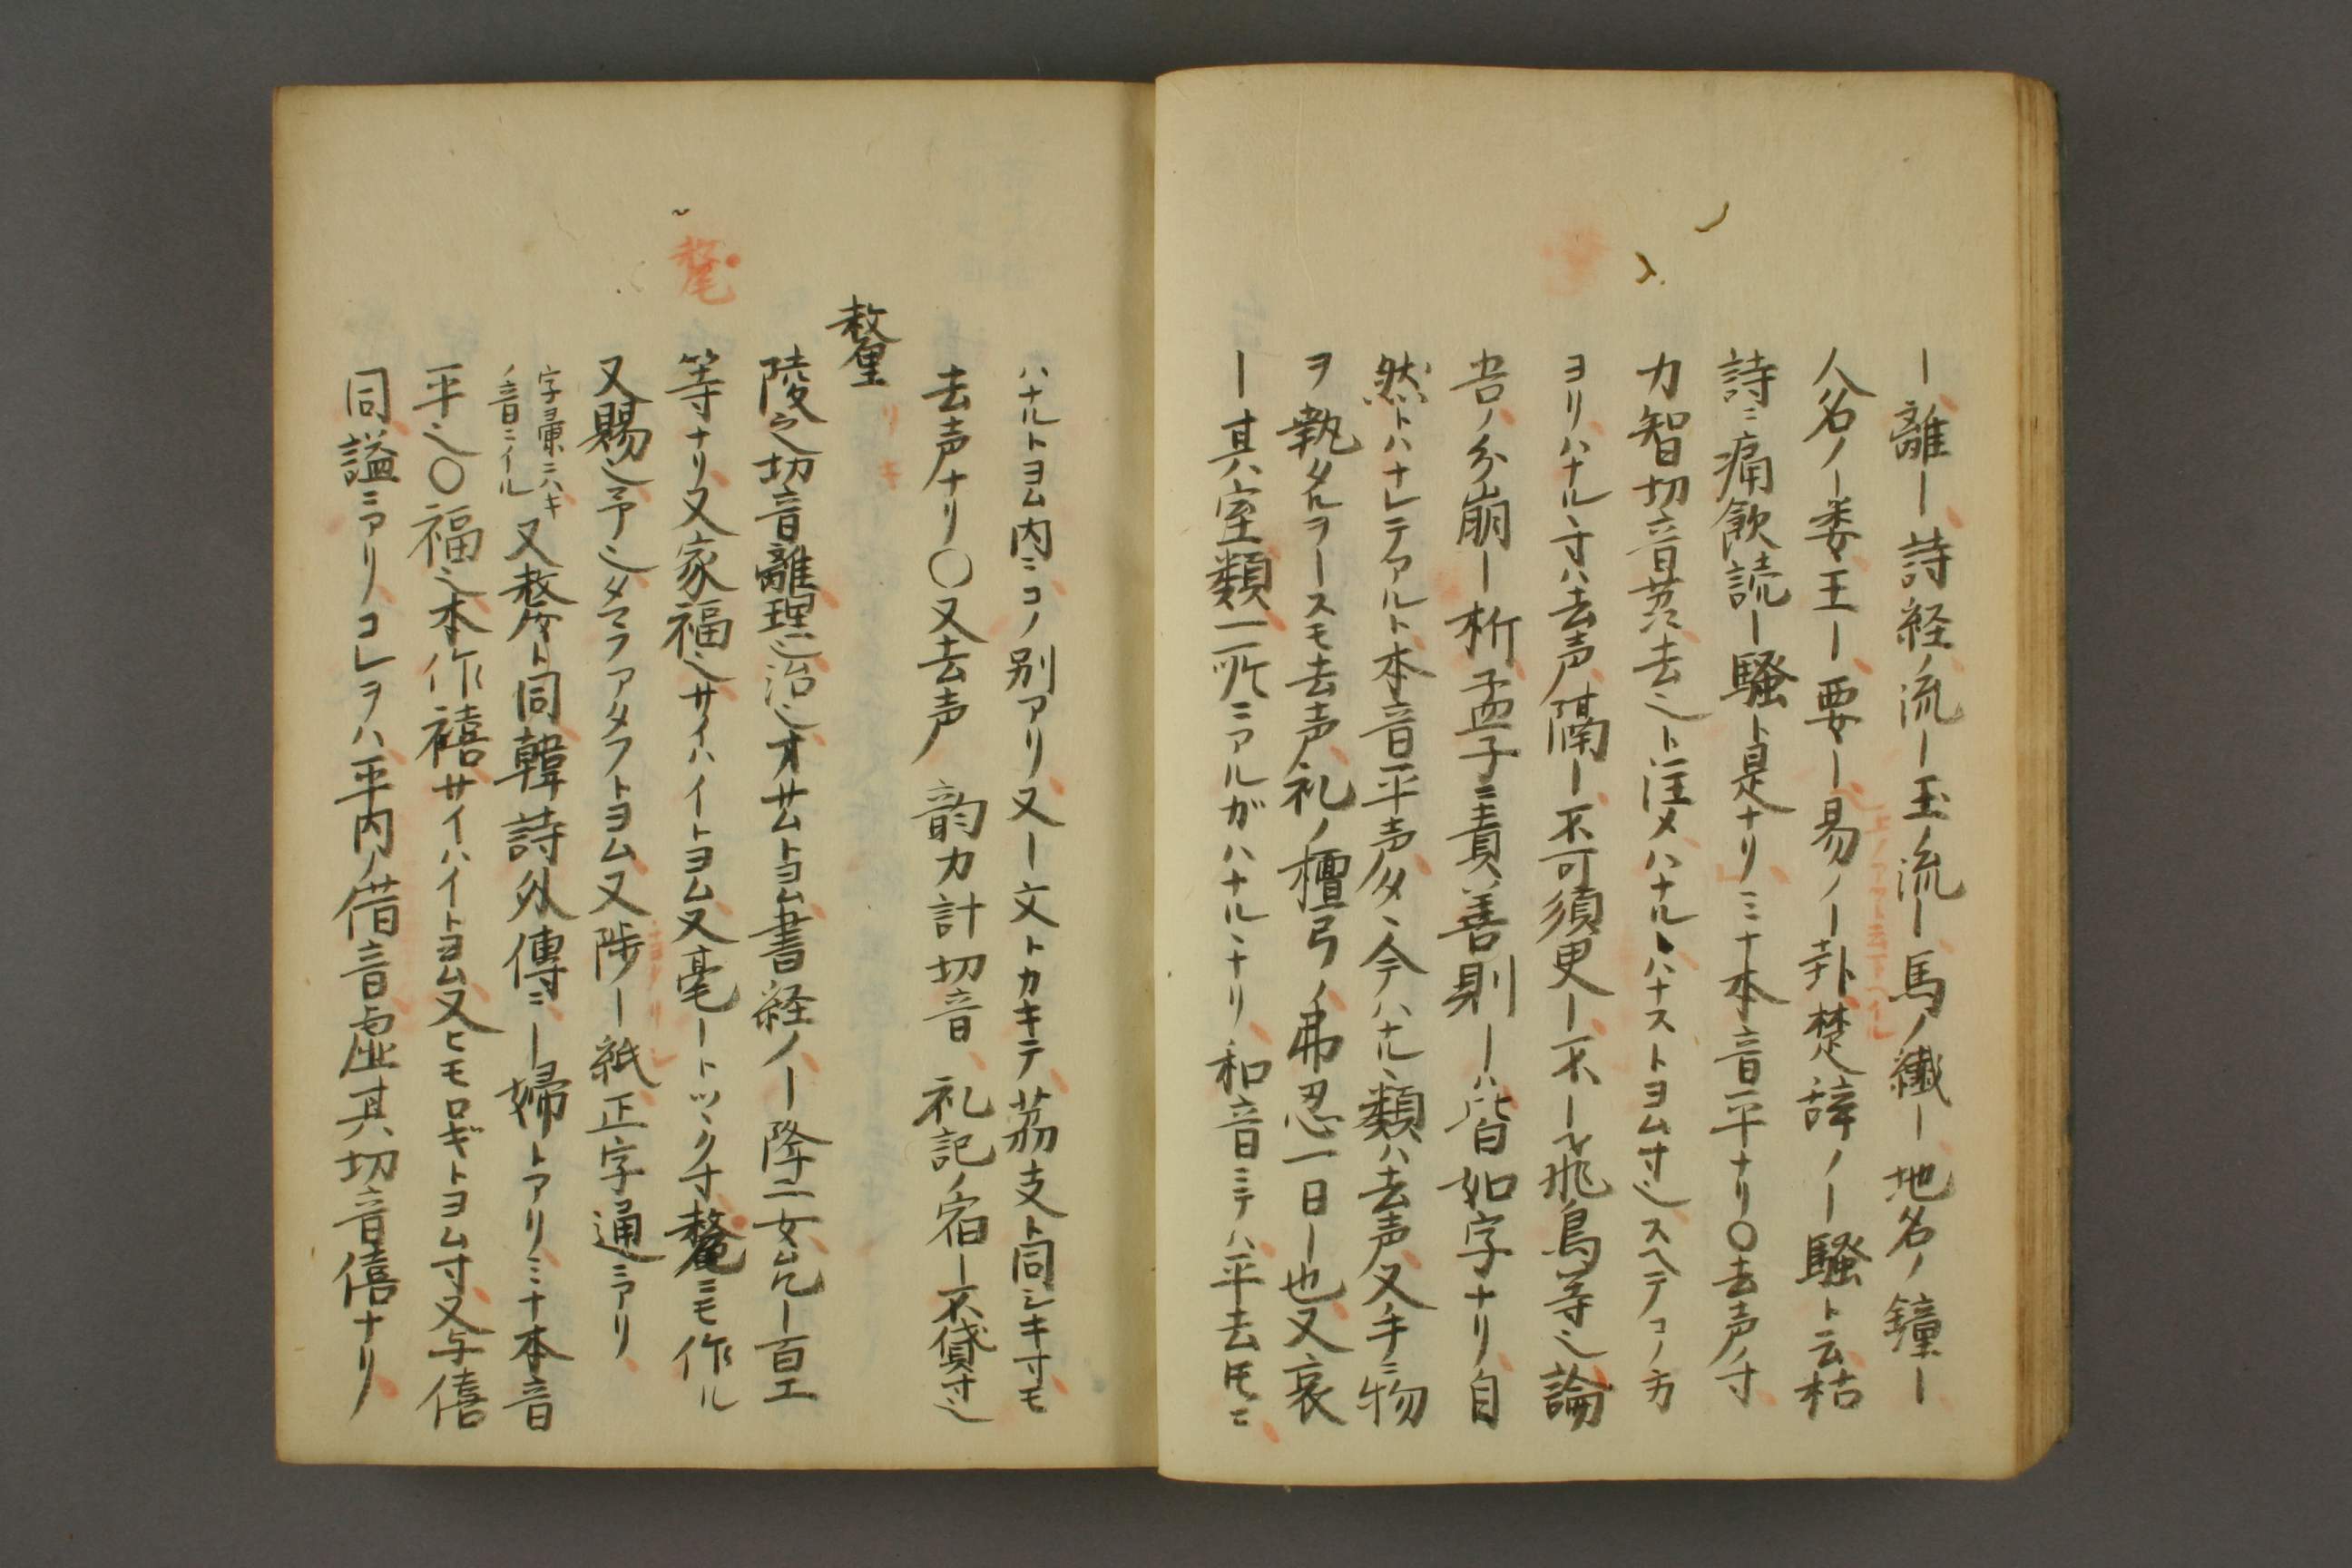 ー離ー詩経ノ流ー玉ノ流ー馬ノ纎ー地名ノ鐘ー
人名ノー委王ー要ー易ノー卦楚辞ノー騒ト云枯
詩ニ痛飲読ー騒ト是ナリミナ本音平ナリ〇去声ノ寸
力智切音茘去也ト注メハナルヽハナストヨム寸也スヘテコノ方
ヨリハナル寸ハ去声隔ー不可須更ー不ー飛鳥等也論
吾ノ分崩ー析孟子ニ責善則ーハ皆如字ナリ自
然トハナレテアルト本音平声タヽ今ハナルヽ類ハ去声又手ニ物
ヲ執タルヲースモ去声礼ノ檀弓ノ弗忍一日ー也又哀
ー其室類一二所ニアルガハナルヽナリ和音ミテハ平去𪜈ニ
ハナルトヨム内ニコノ別アリ又ー文トカキテ茘支ト同シキ寸モ
去声ナリ〇又去声ノ韵力計切音礼記ノ宿ー不貸寸也
釐
陵之切音離理也治也オサムトヨム書経ノー降二女允ー百工
等ナリ又家福也サイハイトヨム又毫ートツヽク寸氂ニモ作ル
又賜也予也タマフアタフトヨム又陟ー紙正字通ニアリ
字彙ニハキ
ノ音ニイル
又嫠ト同韓詩外傳ニー婦トアリミナ本音
平也〇福也本作禧サイハイトヨム又ヒモロギトヨム寸又与僖
同謚ニアリコレヲハ平内ノ借音虚其切音僖ナリ